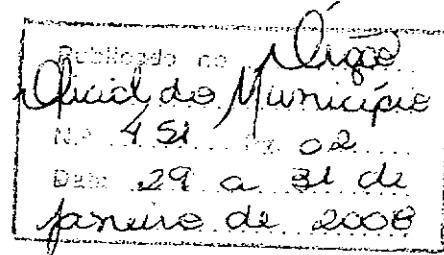 Publicado no Órgão
Oficial do Município
N.º 451 Pg. 02
Data 29 a 31 de
janeiro de 2008